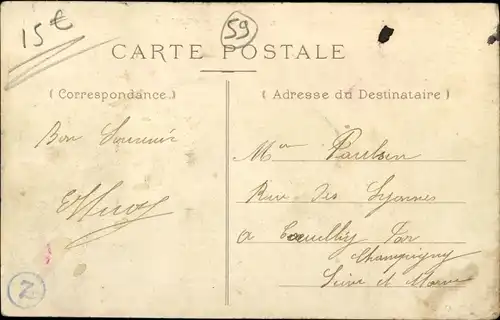 15€
59
CARTE POSTALE
(Correspondance)
(Adresse du Destinataire)
Bon Souvenir
Mr Paulsen
Rue des
a Cœuilly Par
Champigny
Seine et Marne
Z